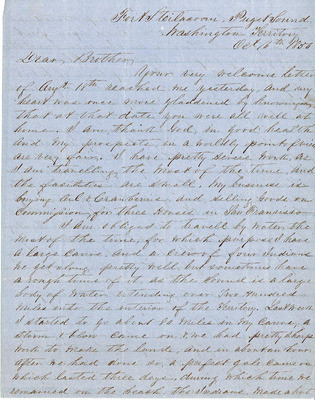 Fort Steilacoom, Puget Sound
Washington Territory
Oct 1855
Dear Brother
Your very welcome letter
of Augt 18th reached me yesterday, and my
heart was once more gladdened by knowing
that at that date you were all well at
home. I am, thank God, in good health
and my prospects in a worldly point of view
are very fair. I have pretty severe work, as
I am travelling the most of the time, and
the facilities are small. My business is
buying Oil & Cranberries, and selling Goods on
Commission, for three Houses in San Francisco
I am obliged to travell by water the
most of the time, for which purpose I have
a large Canoe, and a crew of four Indians
We get along pretty well, but sometimes have
a rough time of it, as the Sound is a large
body of Water extending over Two Hundred
Miles into the interior of the Territory. Last week
I started to go about 80 miles in my Canoe, a
storm came on, & we had pretty sharp
work to make the land, and in about an hour
after we had done so, a perfect gale came on
which lasted three days, during which time we
remained on the beach, the Indians made a hut